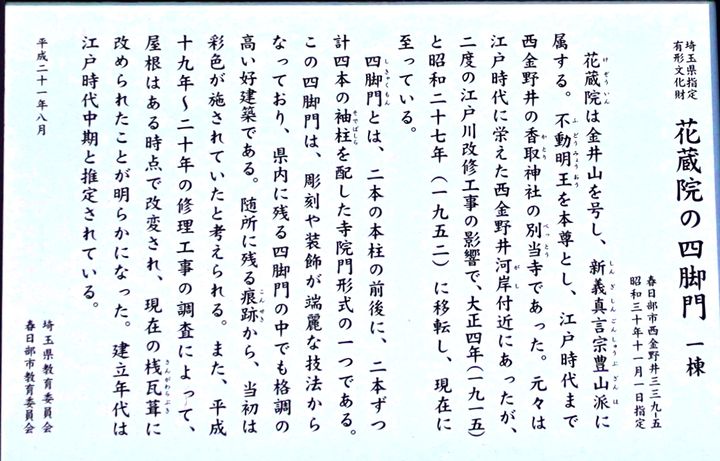 埼玉県指定
有形文化財
花蔵院の四脚門 一棟
春日部市西金野井三三九-五
昭和三十年十一月一日指定
花蔵院は金井山を号し、新義真言宗豊山派に
属する。不動明王を本尊とし、江戸時代まで
西金野井の香取神社の別当寺であった。元々は
江戸時代に栄えた西金野井河岸付近にあったが、
二度の江戸川改修工事の影響で、大正四年(一九一五)
と昭和二十七年(一九五二)に移転し、現在に
至っている。
四脚門とは、二本の本柱の前後に、二本ずつ
計四本の袖柱を配した寺院門形式の一つである。
この四脚門は、彫刻や装飾が端麗な技法から
なっており、県内に残る四脚門の中でも格調の
高い好建築である。随所に残る痕跡から、当初は
彩色が施されていたと考えられる。また、平成
十九年~二十年の修理工事の調査によって、
屋根はある時点で改変され、現在の桟瓦葺に
改められたことが明らかになった。建立年代は
江戸時代中期と推定されている。
平成二十一年八月
埼玉県教育委員会
春日部市教育委員会